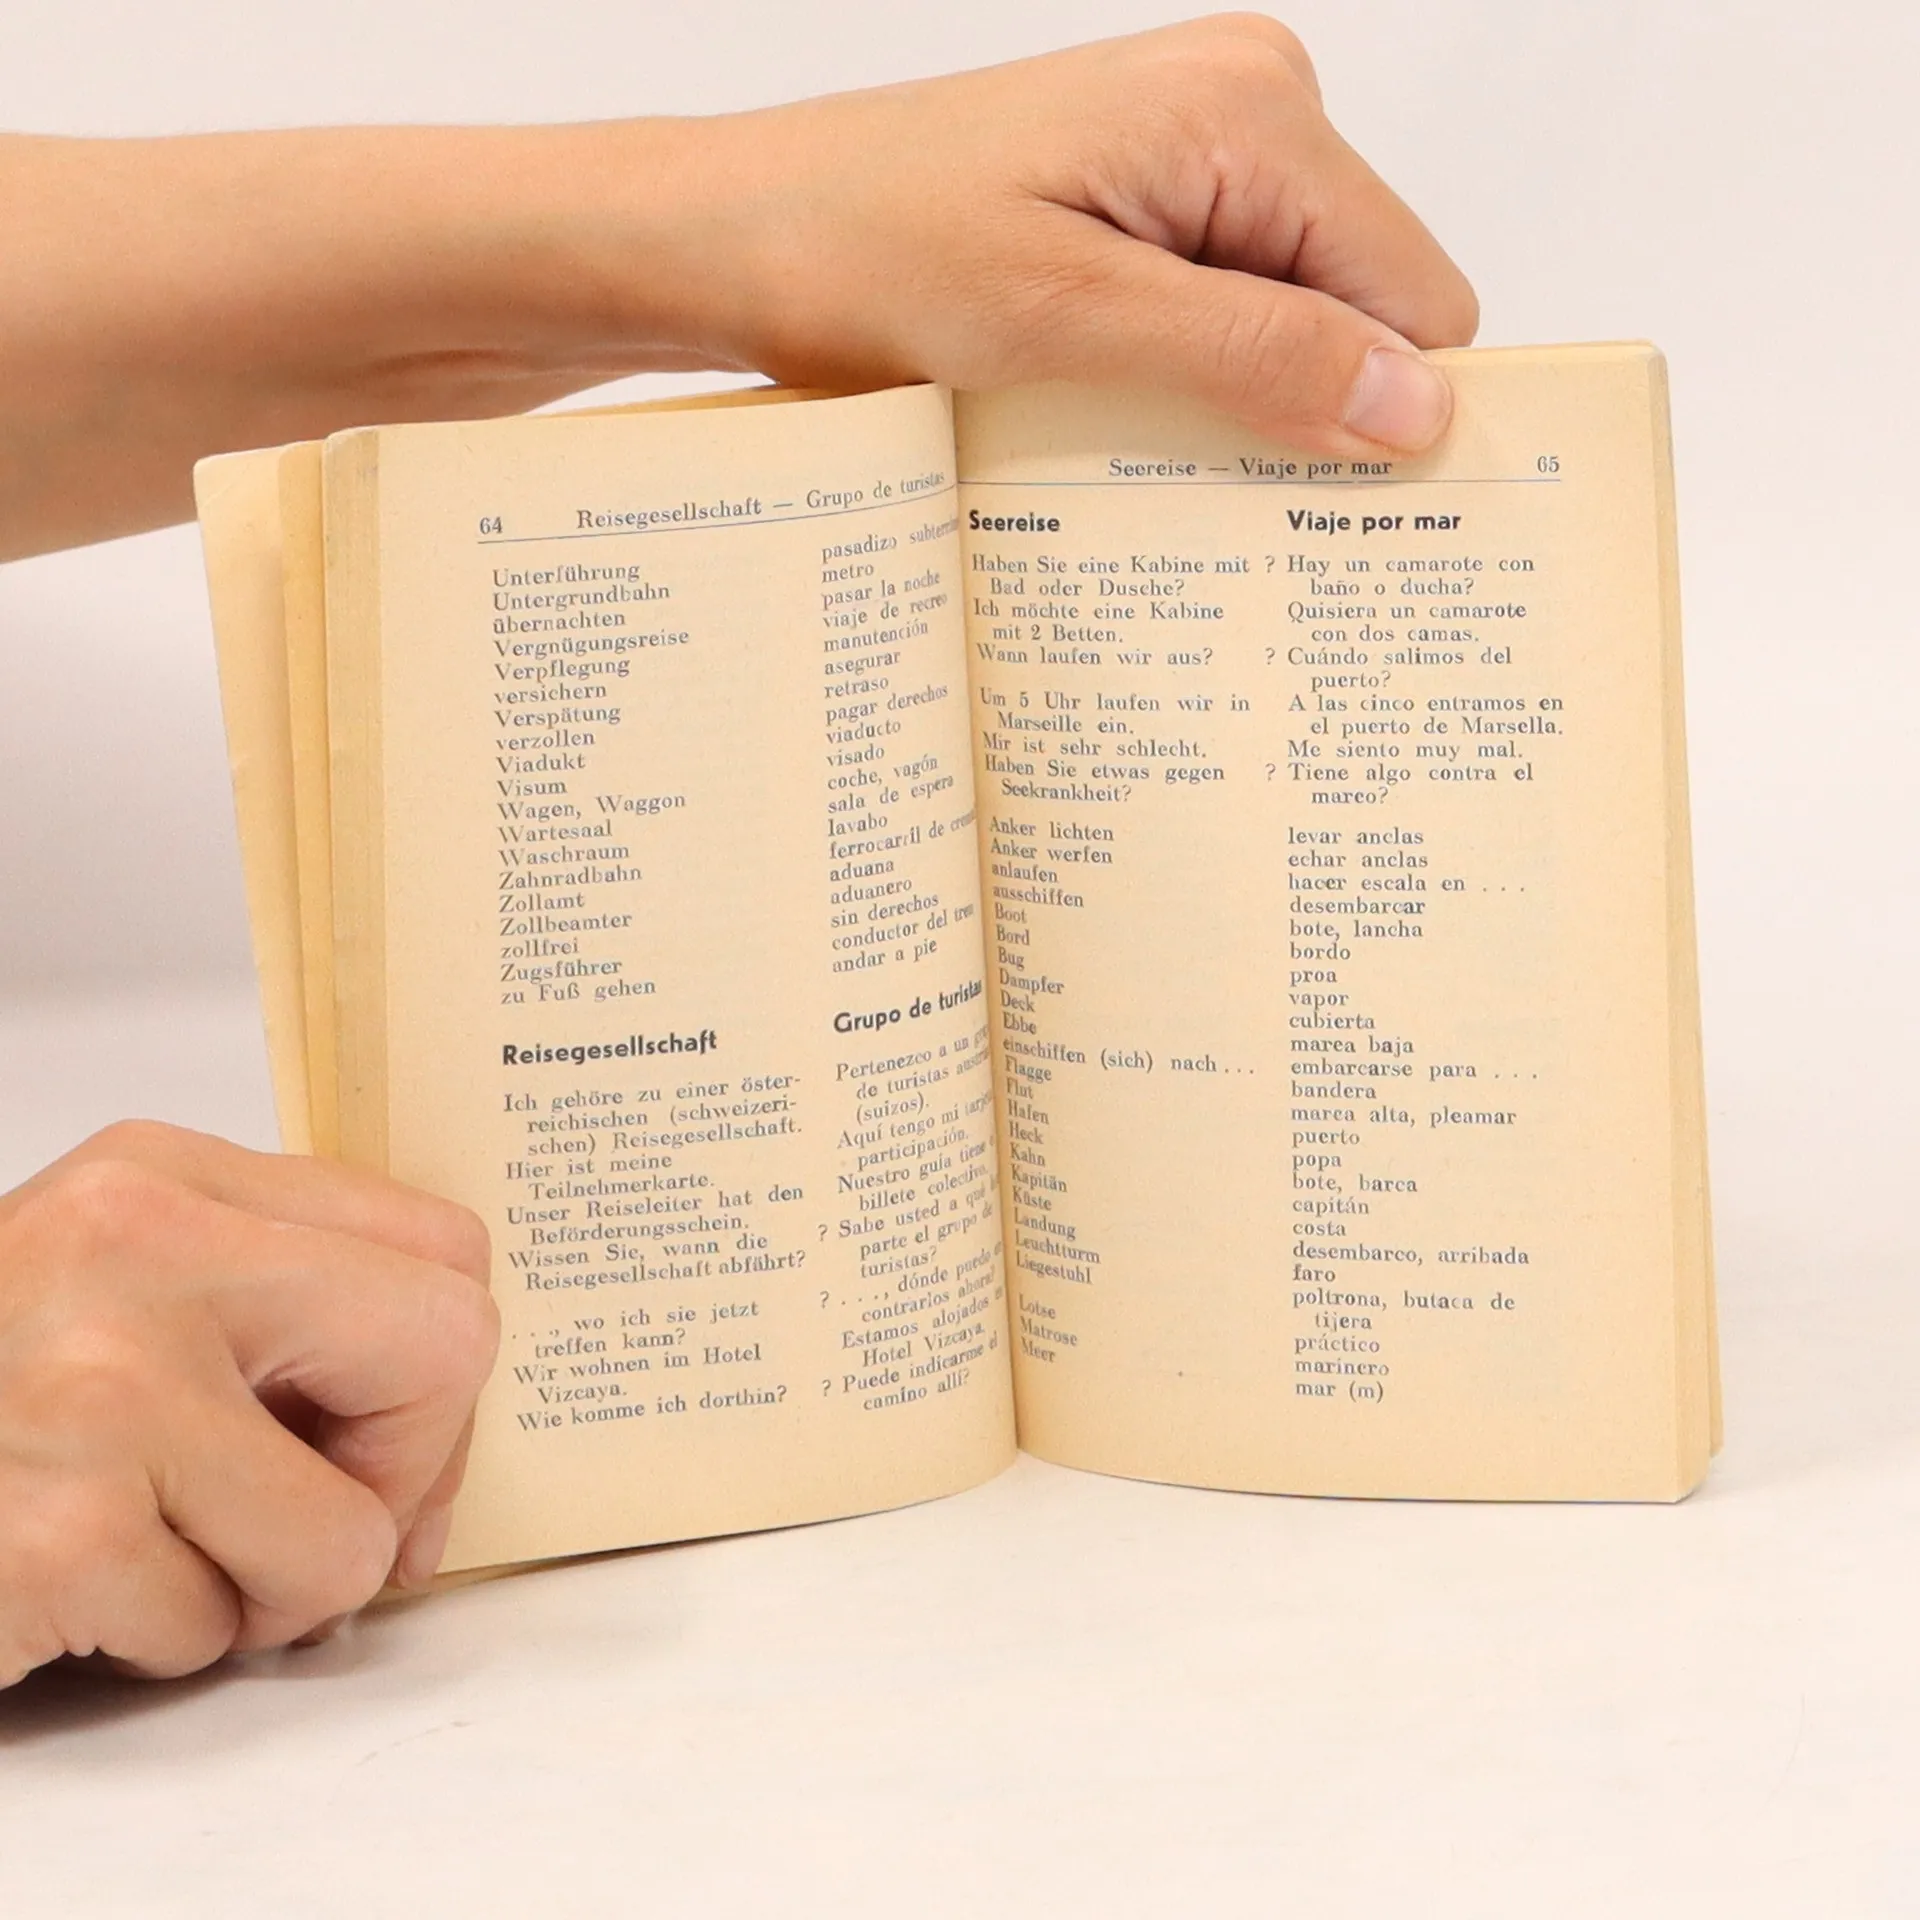 64 Reisegesellschaft — Grupo de turistas
Unterführung
Untergrundbahn
übernachten
Vergnügungsreise
Verpflegung
versichern
Verspätung
verzollen
Viadukt
Visum
Wagen, Waggon
Wartesaal
Waschraum
Zahnradbahn
Zollamt
Zollbeamter
zollfrei
Zugsführer
zu Fuß gehen
pasadizo
metro
pasar la noche
viaje de recreo
manutención
asegurar
retraso
pagar derechos
viaducto
visado
coche, vagón
sala de espera
lavabo
ferrocarril de
aduana
aduanero
sin derechos
conductor del tren
andar a pie
Reisegesellschaft
Ich gehöre zu einer öster-
reichischen (schweizeri-
schen) Reisegesellschaft.
Hier ist meine
Teilnehmerkarte.
Unser Reiseleiter hat den
Beförderungsschein.
Wissen Sie, wann die
Reisegesellschaft abfährt?
. . ., wo ich sie jetzt
treffen kann?
Wir wohnen im Hotel
Vizcaya.
Wie komme ich dorthin?
Grupo de turistas
Pertenezco a un
de turistas
(suizos).
Aquí tengo mi
participación.
Nuestro guía tiene
billete colectivo.
? Sabe usted a qué
parte el grupo de
turistas?
? . . ., dónde puedo
contrarlos ahora?
Estamos alojados
Hotel Vizcaya.
? Puede indicarme el
camino allí?
Seereise — Viaje por mar 65
Seereise
Haben Sie eine Kabine mit
Bad oder Dusche?
Ich möchte eine Kabine
mit 2 Betten.
Wann laufen wir aus?
Um 5 Uhr laufen wir in
Marseille ein.
Mir ist sehr schlecht.
Haben Sie etwas gegen
Seekrankheit?
Anker lichten
Anker werfen
anlaufen
ausschiffen
Boot
Bord
Bug
Dampfer
Deck
Ebbe
einschiffen (sich) nach . . .
Flagge
Flut
Hafen
Heck
Kahn
Kapitän
Küste
Landung
Leuchtturm
Liegestuhl
Lotse
Matrose
Meer
Viaje por mar
? Hay un camarote con
baño o ducha?
Quisiera un camarote
con dos camas.
? Cuándo salimos del
puerto?
A las cinco entramos en
el puerto de Marsella.
Me siento muy mal.
? Tiene algo contra el
mareo?
levar anclas
echar anclas
hacer escala en . . .
desembarcar
bote, lancha
bordo
proa
vapor
cubierta
marea baja
embarcarse para . . .
bandera
marea alta, pleamar
puerto
popa
bote, barca
capitán
costa
desembarco, arribada
faro
poltrona, butaca de
tijera
práctico
marinero
mar (m)